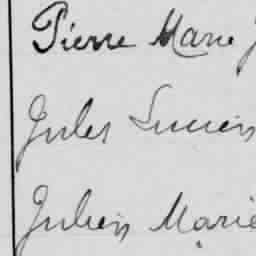 Pierre Marie J
Jules Lucien
Julien Marie